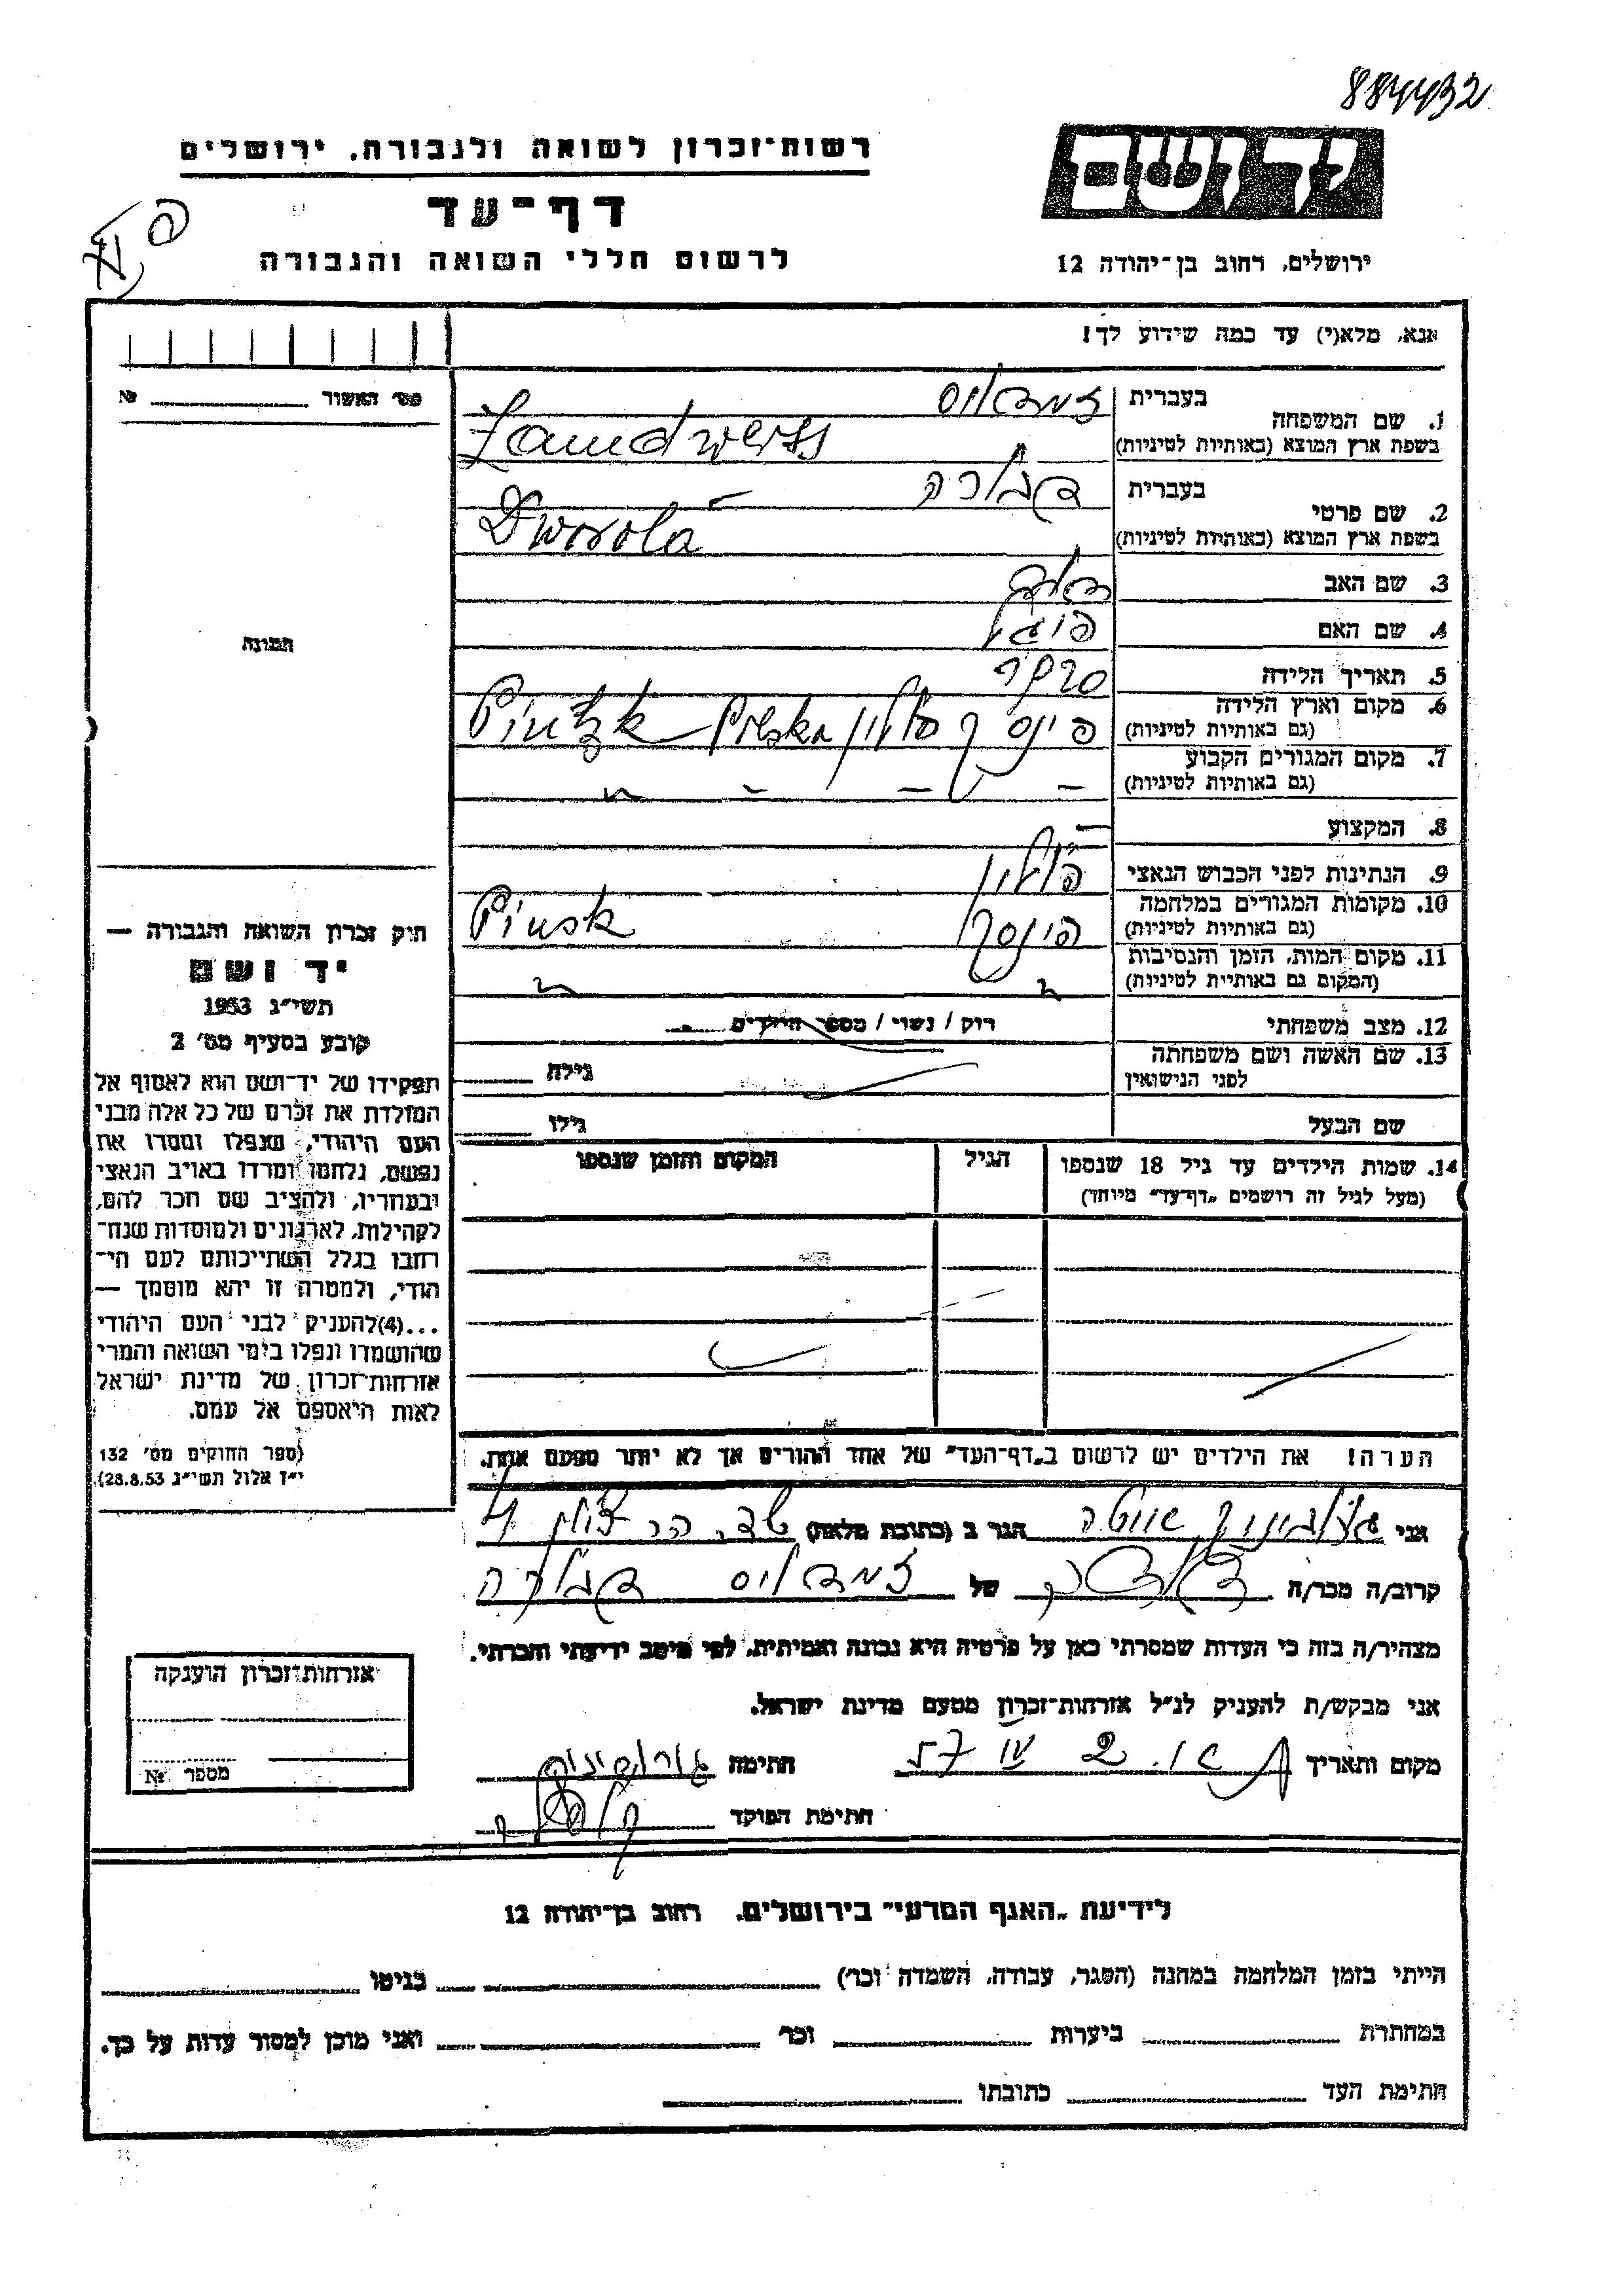 884432
רשות־זכרון לשואה ולגבורה, ירושלים
יד ושם
דף־עד
לרשום חללי השואה והגבורה
ירושלים, רחוב בן־יהודה 12
אנא, מלא(י) עד כמה שידוע לך!
מס' האשור № 
בעברית
1. שם המשפחה
בשפת ארץ המוצא (באותיות לטיניות) Zamdweiss
בעברית דבורה
2. שם פרטי
בשפת ארץ המוצא (באותיות לטיניות) Dworola
3. שם האב
4. שם האם פויגל
5. תאריך הלידה
6. מקום וארץ הלידה פינסק פולין Polska Pintzk
(גם באותיות לטיניות)
7. מקום המגורים הקבוע
(גם באותיות לטיניות)
8. המקצוע —
9. הנתינות לפני הכבוש הנאצי פולין
10. מקומות המגורים במלחמה
(גם באותיות לטיניות) פינסק Pinsk
11. מקום המות, הזמן והנסיבות
(המקום גם באותיות לטיניות)
12. מצב משפחתי רוק / נשוי / מספר הילדים
13. שם האשה ושם משפחתה
לפני הנישואין גילה
שם הבעל גילו
14. שמות הילדים עד גיל 18 שנספו הגיל המקום והזמן שנספו
(מעל לגיל זה רושמים "דף־עד" מיוחד)
הערה! את הילדים יש לרשום ב"דף־העד" של אחד ההורים אך לא יותר מפעם אחת.
תמונה
חוק זכרון השואה והגבורה —
יד ושם
תשי"ג 1953
קובע בסעיף מס' 2
תפקידו של יד־ושם הוא לאסוף אל
המולדת את זכרם של כל אלה מבני
העם היהודי, שנפלו ומסרו את
נפשם, נלחמו ומרדו באויב הנאצי
ובעוזריו, ולהציב שם וזכר להם,
לקהילות, לארגונים ולמוסדות שנח־
רבו בגלל השתייכותם לעם הי־
הודי, ולמטרה זו יהא מוסמך —
...(4) להעניק לבני העם היהודי
שהושמדו ונפלו בימי השואה והמרי
אזרחות־זכרון של מדינת ישראל
לאות היאספם אל עמם.
(ספר החוקים מס' 132
י"ז אלול תשי"ג 28.8.53)
אני הגר ב (כתובת מלאה) שד. הר ציון
קרוב/ה מכר/ה של דבורה
מצהיר/ה בזה כי העדות שמסרתי כאן על פרטיה היא נכונה ואמיתית, לפי מיטב ידיעתי והכרתי.
אני מבקש/ת להעניק לנ"ל אזרחות־זכרון מטעם מדינת ישראל.
מקום ותאריך ת.א. 2 IV 57 חתימה
חתימת הפוקד
אזרחות־זכרון הוענקה
מספר №
לידיעת "האגף המדעי" בירושלים, רחוב בן־יהודה 12
הייתי בזמן המלחמה במחנה (הסגר, עבודה, השמדה וכו') בגיטו
במחתרת ביערות וכו' ואני מוכן למסור עדות על כך.
חתימת העד כתובתו